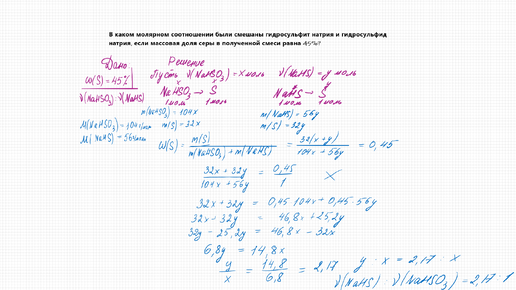 В каком молярном соотношении были смешаны гидросульфит натрия и гидросульфид
натрия, если массовая доля серы в полученной смеси равна 45%?
Дано
W(S) = 45%
ν(NaHSO3):ν(NaHS)
M(NaHSO3) = 104 г/моль
M(NaHS) = 56 г/моль
Решение
Пусть ν(NaHSO3) = x моль ν(NaHS) = y моль
x x
NaHSO3 → S
1 моль 1 моль
y
NaHS → S
1 моль 1 моль
m(NaHSO3) = 104x
m(S) = 32x
m(NaHS) = 56y
m(S) = 32y
W(S) = m(S) / m(NaHSO3) + m(NaHS) = 32(x+y) / 104x + 56y = 0,45
32x + 32y / 104x + 56y = 0,45 / 1
32x + 32y = 0,45·104x + 0,45·56y
32x + 32y = 46,8x + 25,2y
32y - 25,2y = 46,8x - 32x
6,8y = 14,8x
y / x = 14,8 / 6,8 = 2,17 y · x = 2,17 · x
ν(NaHS) : ν(NaHSO3) = 2,17 : 1